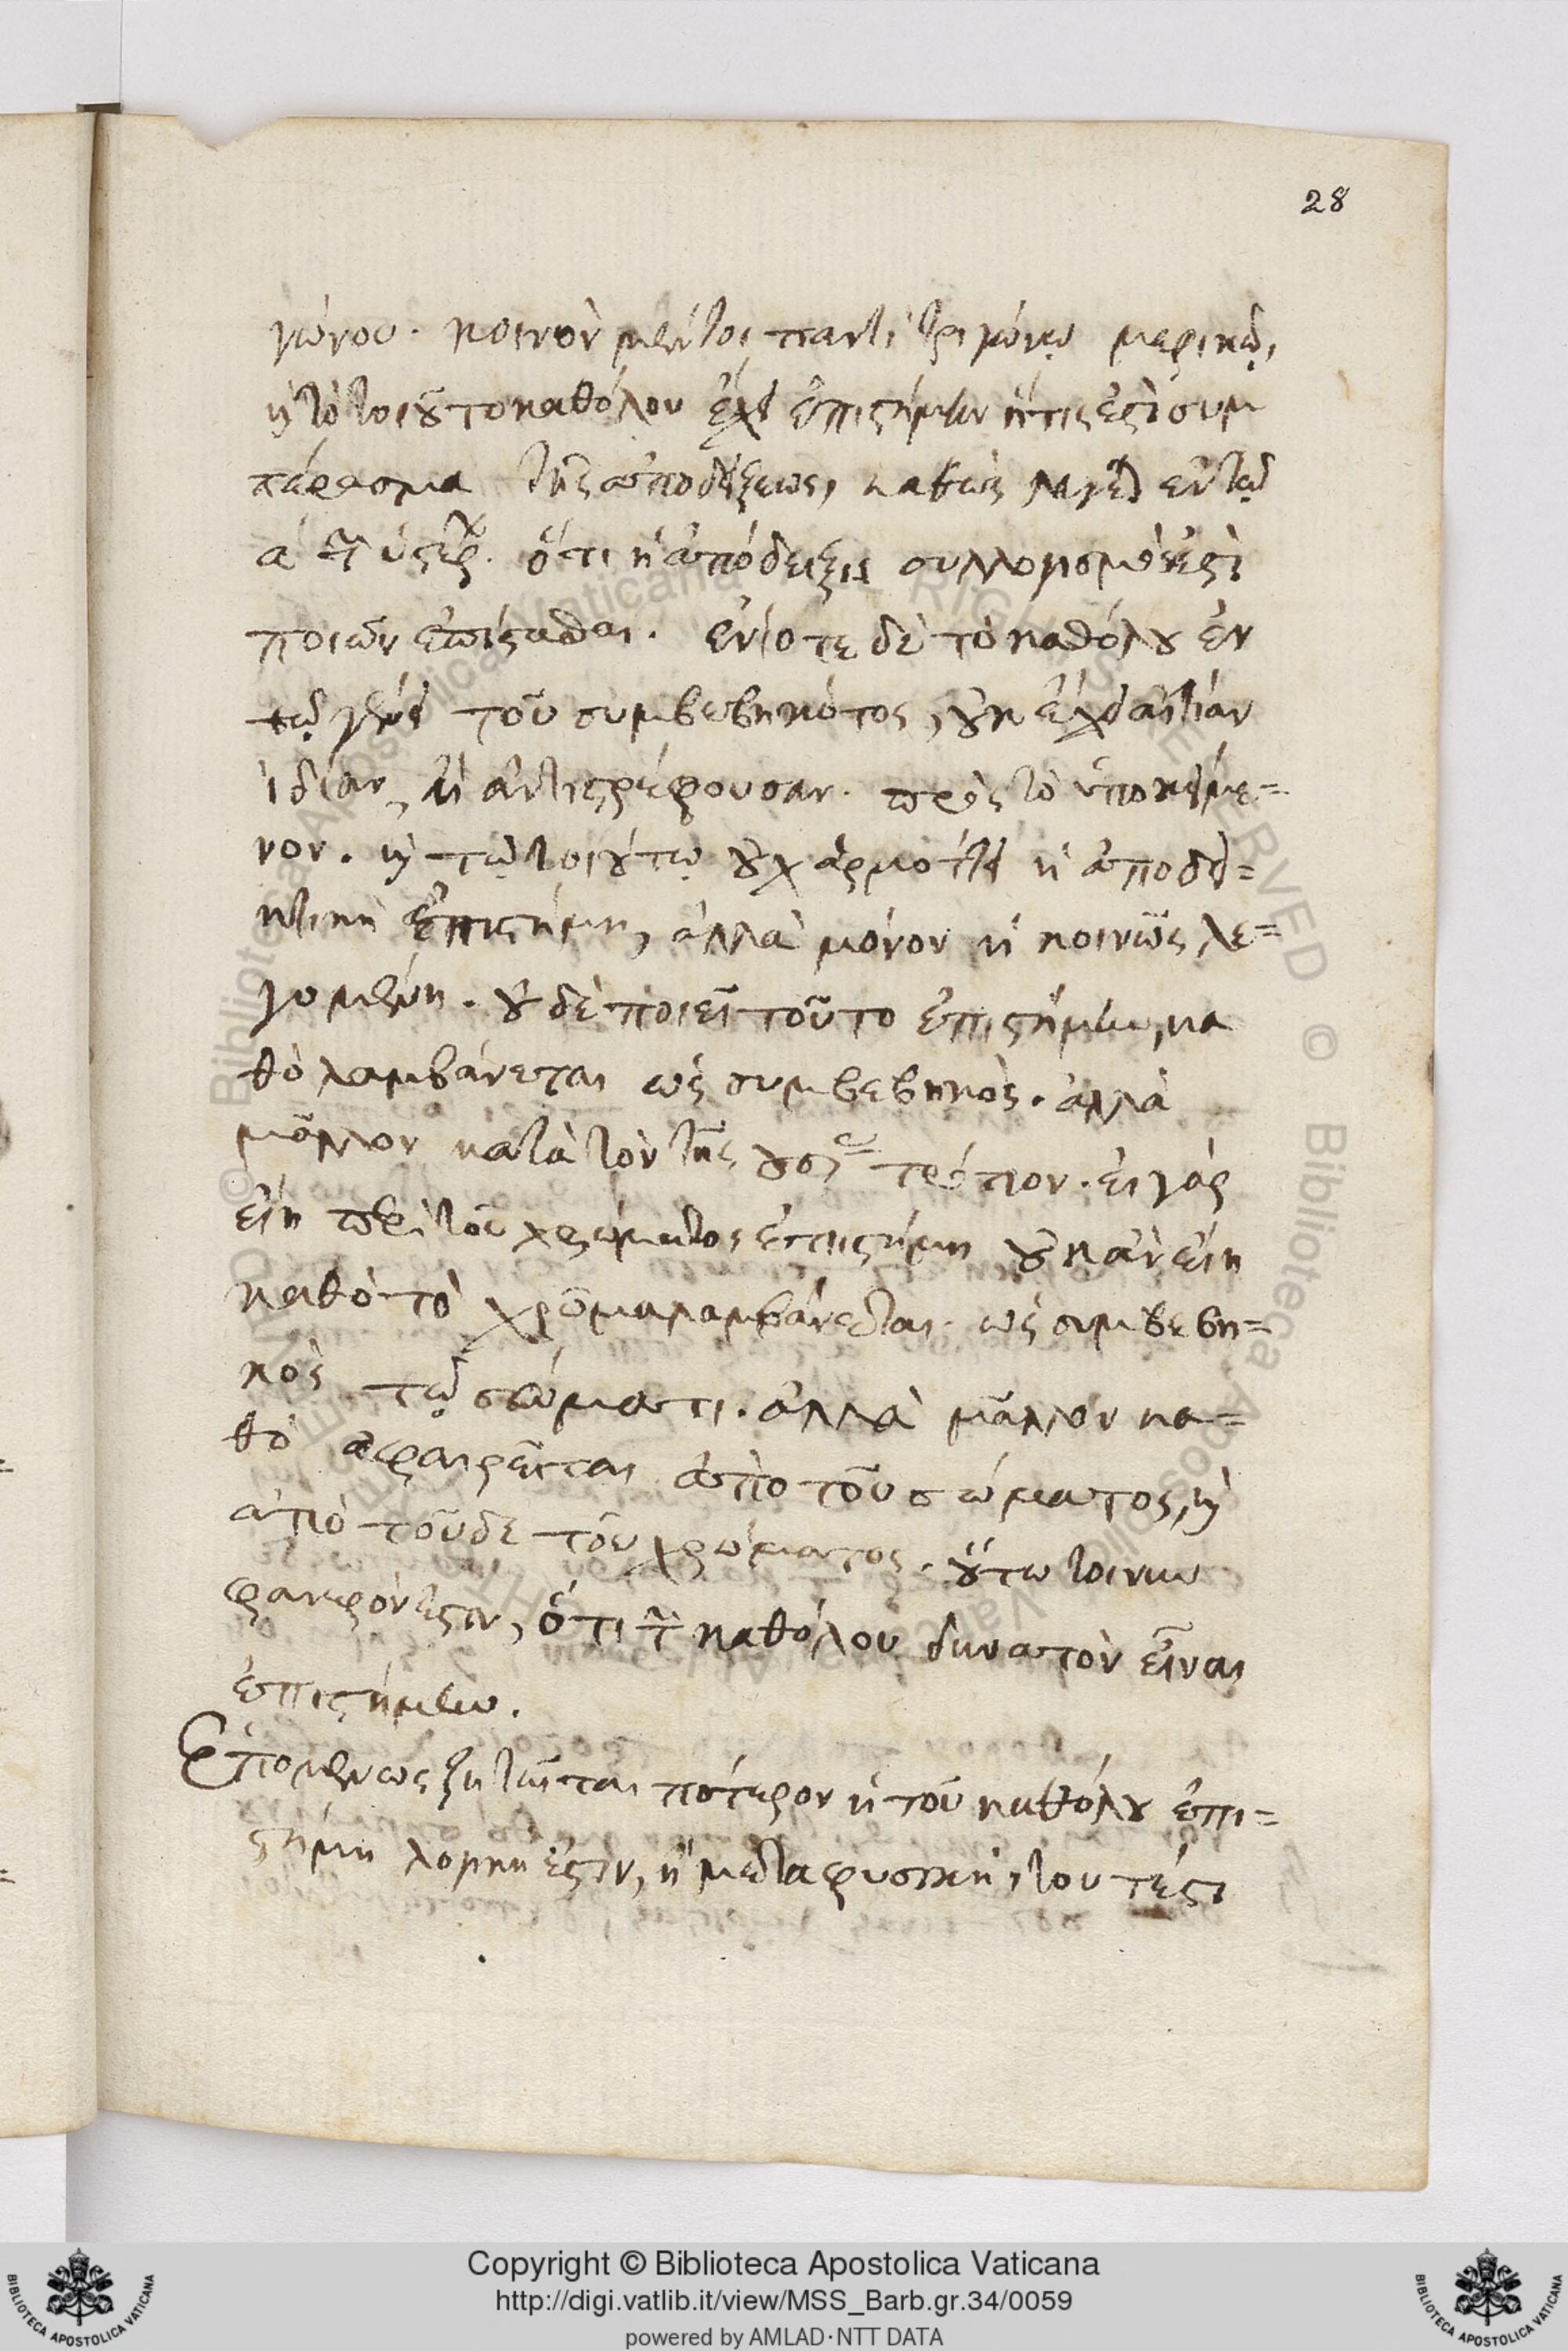 28
γώνου. κοινὸν μέντοι παντὶ τριγώνῳ μερικῷ,
κ̀ τὸ τοιοῦτο καθόλου ἔχει ἐπιστήμην ἥτις ἐστὶ συμ
πέρασμα τῆς ἀποδείξεως, καθὼς λέγει ἐν τῷ
α τῶν ὑστέρ. ὅτι ἡ ἀπόδειξις συλλογισμός ἐστι
ποιῶν ἐπίστασθαι. ἐνίοτε δὲ τὸ καθόλου ἐν
τῷ γένει τοῦ συμβεβηκότος, οὐκ ἔχει αἰτίαν
ἰδίαν, κ̀ ἀντιστρέφουσαν. πρὸς τὸ ὑποκείμε=
νον. κ̀ τῷ τοιούτῳ οὐχ ἁρμόττει ἡ ἀποδει=
κτικὴ ἐπιστήμη, ἀλλὰ μόνον ἡ κοινῶς λε=
γομένη. οὐδὲ ποιεῖ τοῦτο ἐπιστήμην, κα
θὸ λαμβάνεται ὡς συμβεβηκός. ἀλλὰ
μᾶλλον κατὰ τὸν τῆς οὐσίας τρόπον. εἰ γὰρ
εἴη περὶ τοῦ χρώματος ἐπιστήμη οὐκ ἂν εἴη
καθὸ τὸ χρῶμα λαμβάνεται. ὡς συμβεβη=
κὸς τῷ σώματι. ἀλλὰ μᾶλλον κα=
θὸ ἀφαιρεῖται ἀπὸ τοῦ σώματος, κ̀
ἀπὸ τοῦδε τοῦ χρώματος. οὕτω τοίνυν
φανερόν ἐστιν, ὅτι τῶν καθόλου δυνατὸν εἶναι
ἐπιστήμην.
Ἑπομένως ζητεῖται πότερον ἡ τοῦ καθόλου ἐπι=
στήμη λογική ἐστιν, ἢ μεταφυσική, τουτέστι
Copyright © Biblioteca Apostolica Vaticana
http://digi.vatlib.it/view/MSS_Barb.gr.34/0059
powered by AMLAD·NTT DATA
BIBLIOTECA APOSTOLICA VATICANA
BIBLIOTECA APOSTOLICA VATICANA